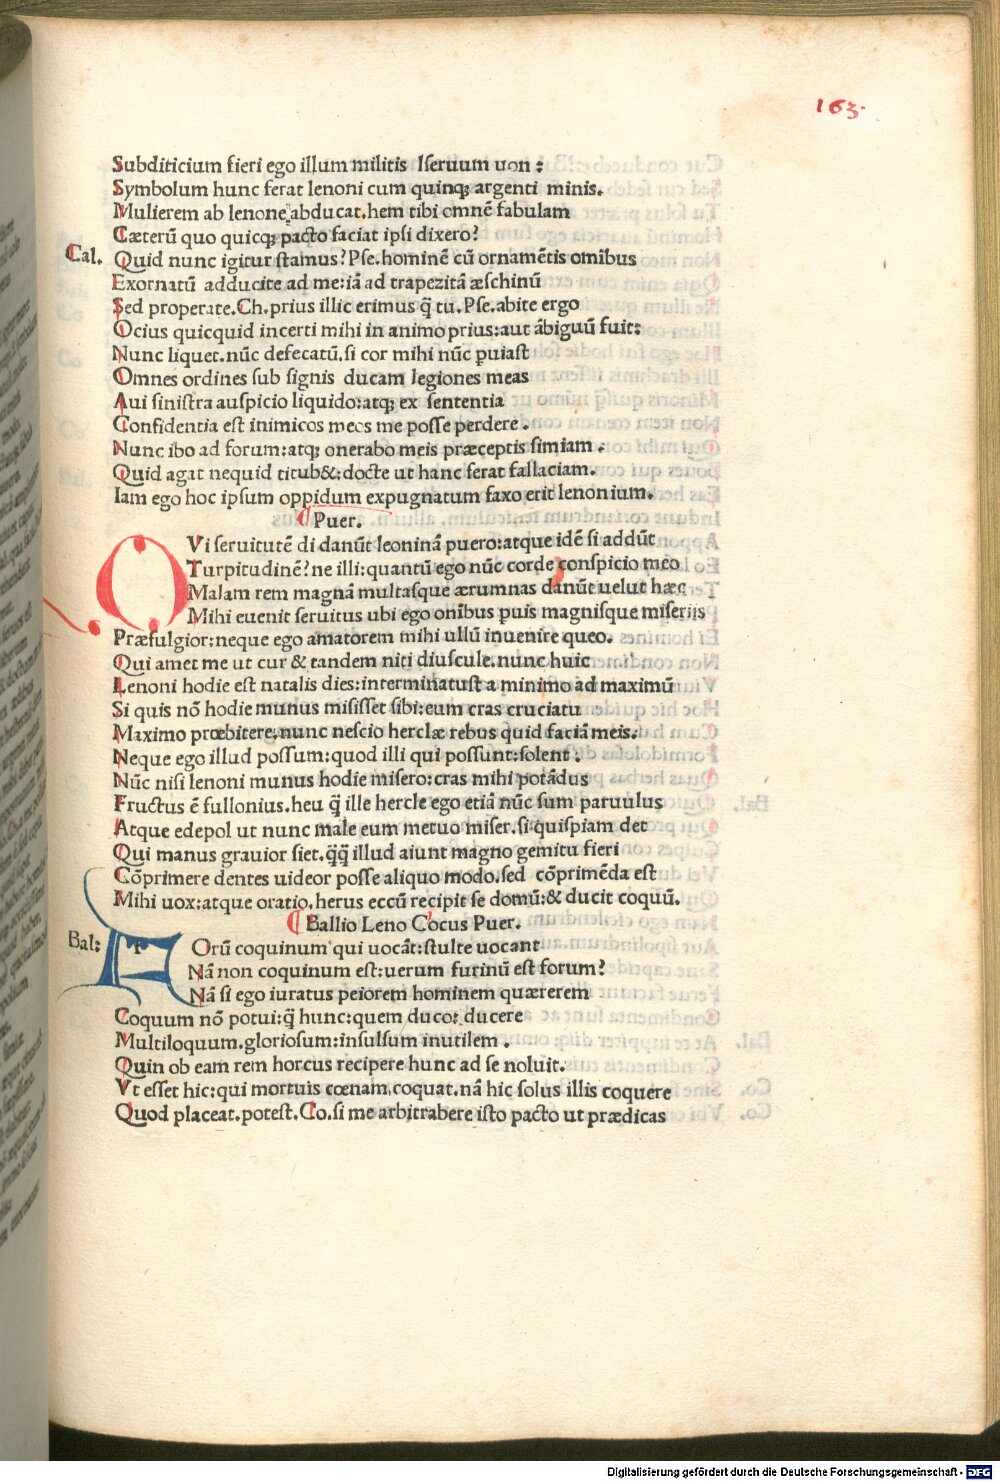 163.
Subditicium fieri ego illum militis Iseruum uon :
Symbolum hunc ferat lenoni cum quinqꝫ argenti minis.
Mulierem ab lenone abducat.hem tibi omnē fabulam
Cæterū quo quicqꝫ pacto faciat ipsi dixero?
Cal. Quid nunc igitur stamus? Pse.hominē cū ornamētis omibus
Exornatū adducite ad me:iā ad trapezitā æschinū
Sed properate.Ch.prius illic erimus q̄ tu.Pse.abite ergo
Ocius quicquid incerti mihi in animo prius:aut ābiguū fuit:
Nunc liquet.nūc defecatū.si cor mihi nūc ꝑuiast
Omnes ordines sub signis ducam legiones meas
Aui sinistra auspicio liquido:atqꝫ ex sententia
Confidentia est inimicos meos me posse perdere.
Nunc ibo ad forum:atqꝫ onerabo meis præceptis simiam.
Quid agat nequid titub&:docte ut hanc ferat fallaciam.
Iam ego hoc ipsum oppidum expugnatum faxo erit lenonium.
Puer.
O Vi seruitutē di danūt leoninā puero:atque idē si addūt
Turpitudinē?ne illi:quantū ego nūc corde conspicio meo
Malam rem magnā multasque ærumnas danūt uelut hæc
Mihi euenit seruitus ubi ego onībus puis magnisque miseriis
Præfulgior:neque ego amatorem mihi ullū inuenire queo.
Qui amet me ut cur & tandem niti diuscule.nunc huic
Lenoni hodie est natalis dies:interminatust a minimo ad maximū
Si quis nō hodie munus misisset sibi:eum cras cruciatu
Maximo præbitere.nunc nescio herclæ rebus quid faciā meis.
Neque ego illud possum:quod illi qui possunt:solent.
Nūc nisi lenoni munus hodie misero:cras mihi potādus
Fructus ē fullonius.heu q̄ ille hercle ego etiā nūc sum paruulus
Atque edepol ut nunc male eum metuo miser.si quispiam det
Qui manus grauior siet.q̄q̄ illud aiunt magno gemitu fieri
Cōprimere dentes uideor posse aliquo modo.sed cōprimēda est
Mihi uox:atque oratio.herus eccū recipit se domū:& ducit coquū.
Ballio Leno Cocus Puer.
Bal: F Orū coquinum qui uocāt:stulte uocant
Nā non coquinum est:uerum furinū est forum?
Nā si ego iuratus peiorem hominem quærerem
Coquum nō potui:q̄ hunc:quem duco: ducere
Multiloquum.gloriosum:insulsum inutilem.
Quin ob eam rem horcus recipere hunc ad se noluit.
Vt esset hic:qui mortuis cœnam.coquat.nā hic solus illis coquere
Quod placeat.potest.Co.si me arbitrabere isto pacto ut prædicas
Digitalisierung gefördert durch die Deutsche Forschungsgemeinschaft - DFG